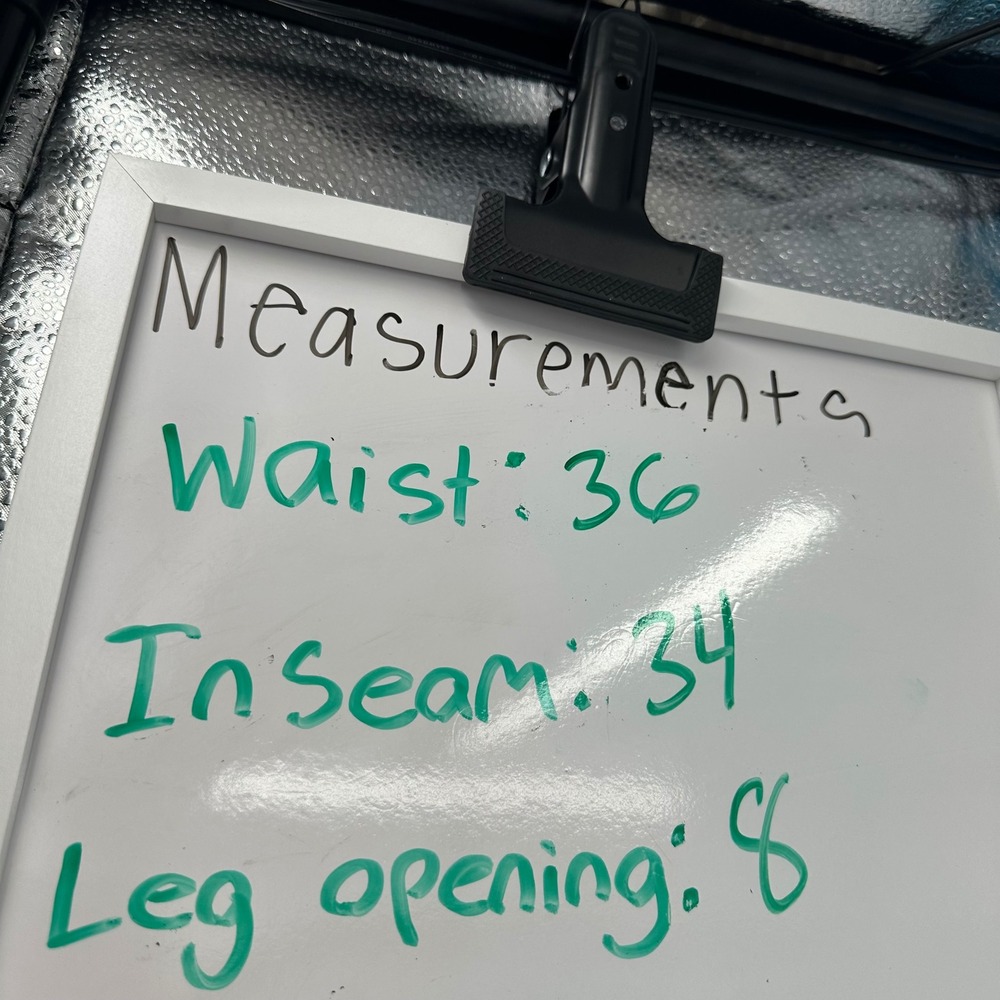 Measurements
Waist: 36
Inseam: 34
Leg opening: 8